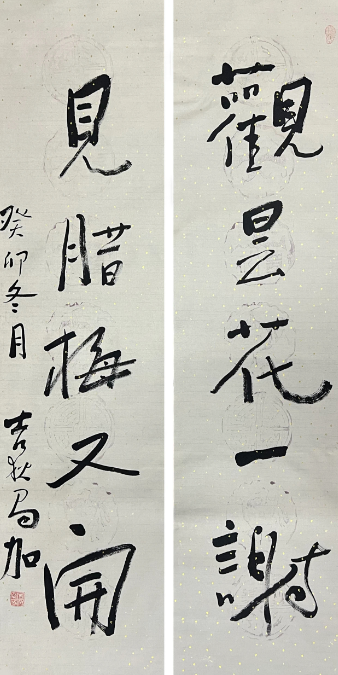 觀昙花一謝
見腊梅又開
癸卯冬月 吉狄馬加